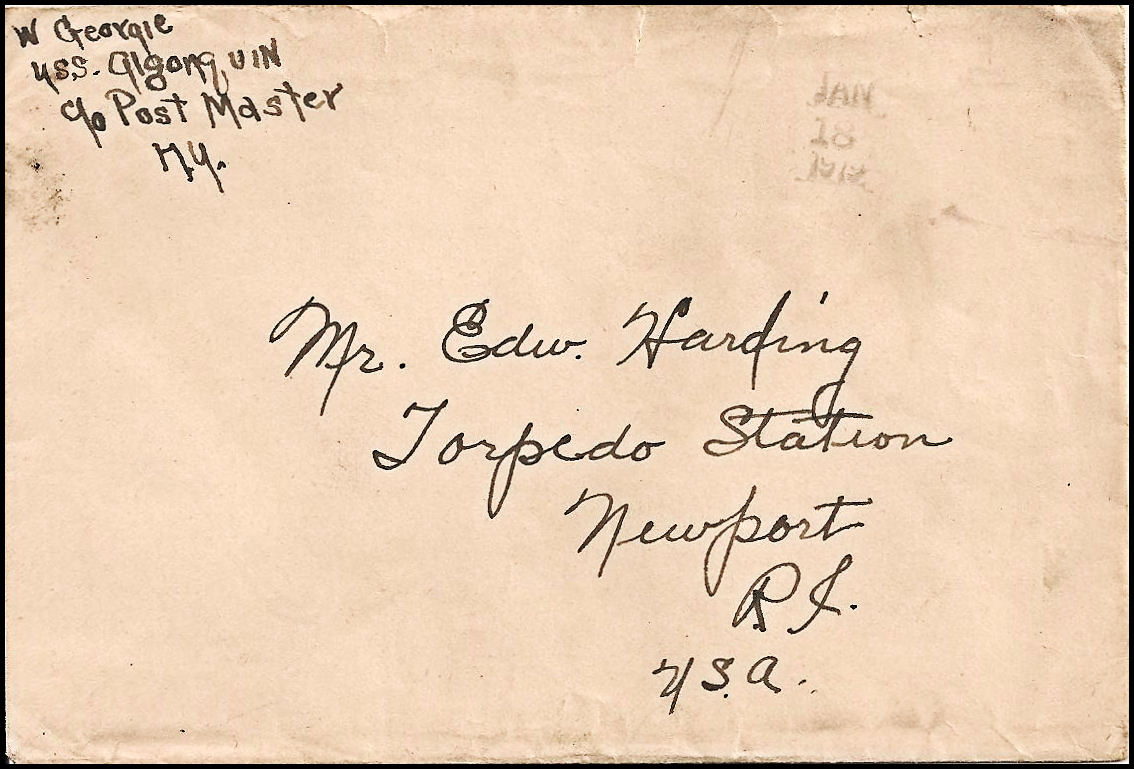 W Georgie
USS. Algonquin
c/o Post Master
N.Y.
JAN
18
Mr. Edw. Harding
Torpedo Station
Newport
R.I.
U.S.A.